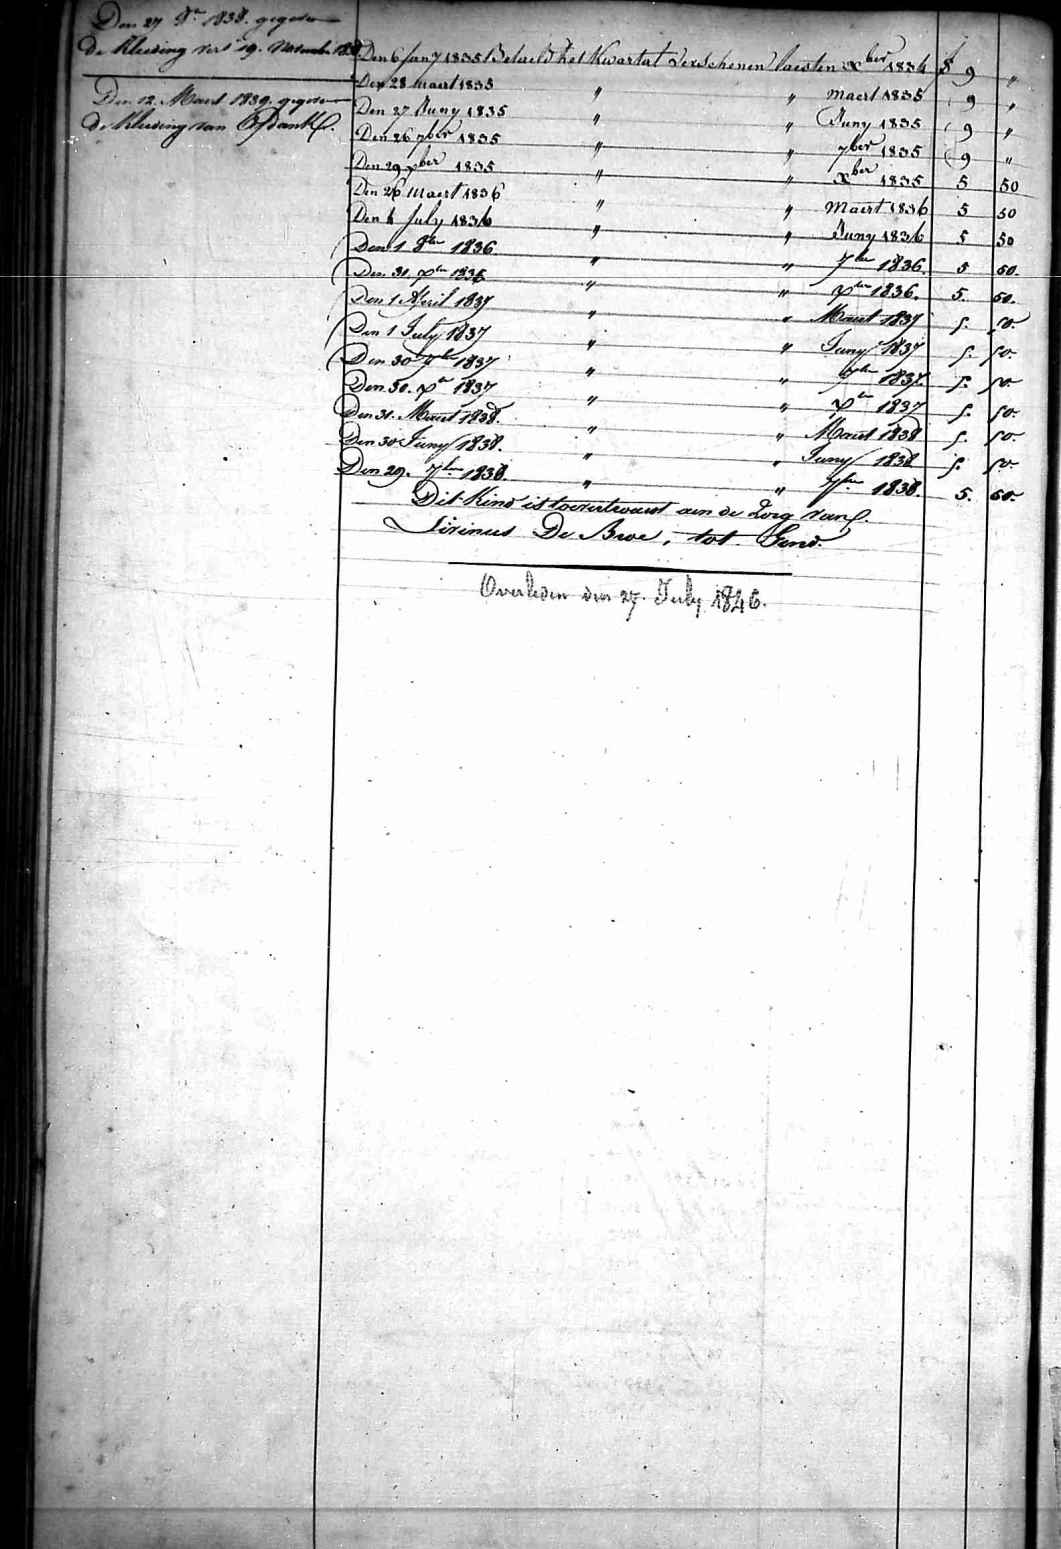 Den 27 8re 1838. gegeven
de kleeding vers 19. November
Den 12. Maert 1839. gegeven
de kleeding van
Den 6 Jany 1835 Betaeld het kwartal verschenen laesten xber 1834 f 9 "
Den 28 maert 1835 " " maert 1835 9 "
Den 27 Juny 1835 " " Juny 1835 9 "
Den 26 7ber 1835 " " 7ber 1835 9 "
Den 29 xber 1835 " " xber 1835 5 50
Den 26 maert 1836 " " Maert 1836 5 50
Den 6 July 1836 " " Juny 1836 5 50
Den 1 8bre 1836 " " 7bre 1836. 5 50.
Den 31. xbre 1836 " " xbre 1836. 5. 50.
Den 1 April 1837 " " Maert 1837 5. 50.
Den 1 July 1837 " " Juny 1837 5. 50.
Den 30 7bre 1837 " " 7bre 1837. 5. 50.
Den 30. xre 1837 " " xre 1837 5. 50.
Den 31. Maert 1838. " " Maert 1838 5. 50.
Den 30 Juny 1838. " " Juny 1838 5. 50.
Den 29. 7bre 1838. " " 7bre 1838. 5. 50.
Dit kind is toevertrouwt aen de zorg van
Livinus De Broe, tot Gend.
Overleden den 27. July 1846.